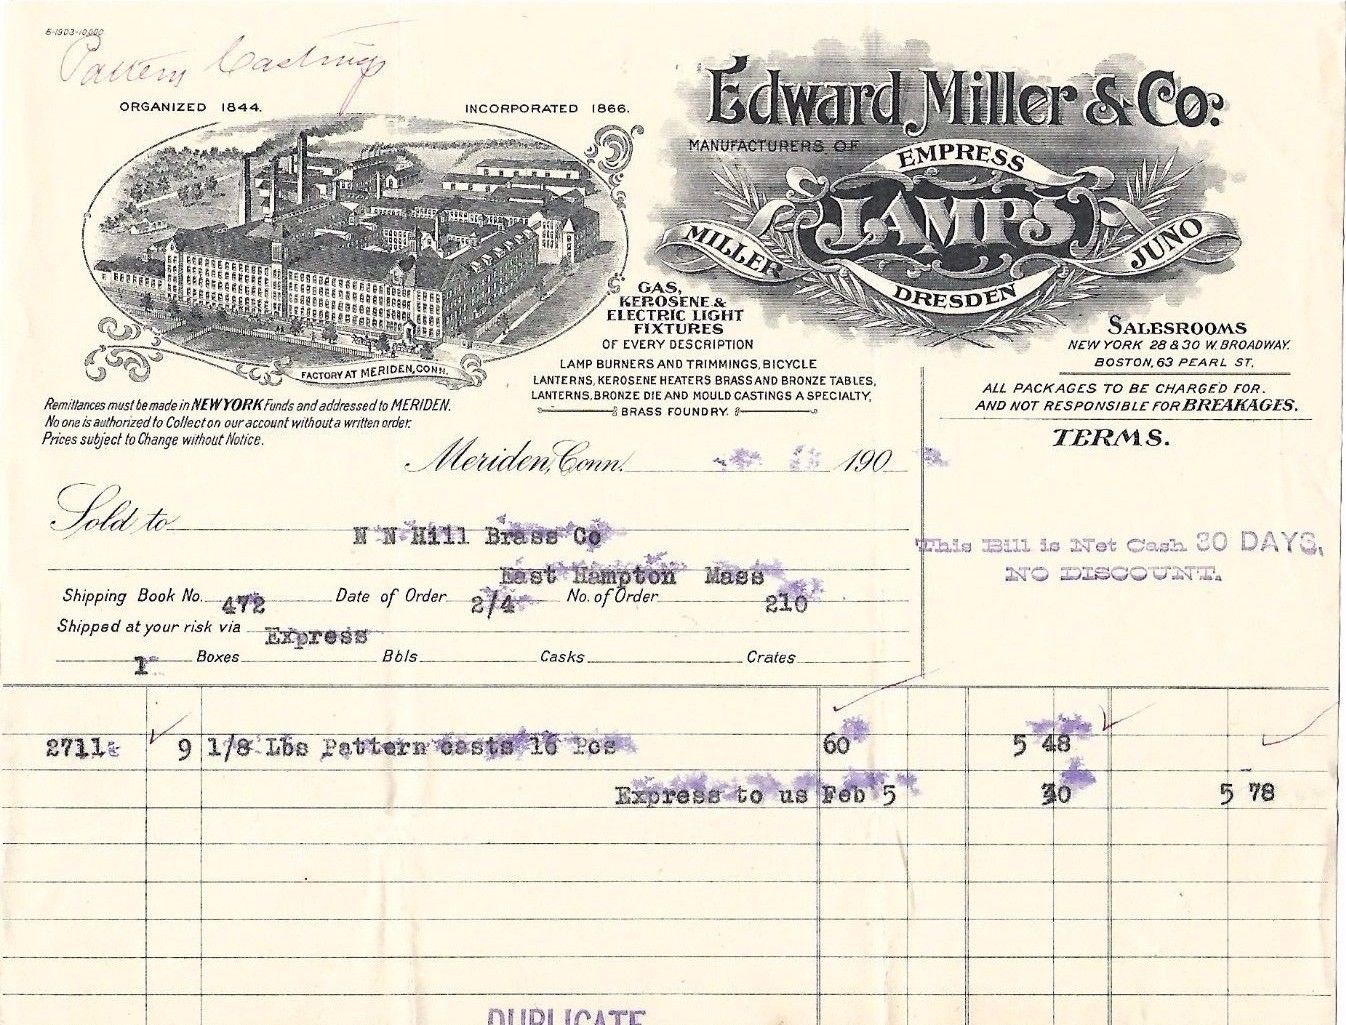 6-1903-10,000
Pattern Castings
ORGANIZED 1844. INCORPORATED 1866.
Edward Miller & Co.
MANUFACTURERS OF
EMPRESS
LAMPS
MILLER
JUNO
DRESDEN
FACTORY AT MERIDEN, CONN.
GAS,
KEROSENE &
ELECTRIC LIGHT
FIXTURES
OF EVERY DESCRIPTION
LAMP BURNERS AND TRIMMINGS, BICYCLE
LANTERNS, KEROSENE HEATERS BRASS AND BRONZE TABLES,
LANTERNS, BRONZE DIE AND MOULD CASTINGS A SPECIALTY,
BRASS FOUNDRY.
SALESROOMS
NEW YORK 28 & 30 W. BROADWAY.
BOSTON, 63 PEARL ST,
ALL PACKAGES TO BE CHARGED FOR.
AND NOT RESPONSIBLE FOR BREAKAGES.
TERMS.
Remittances must be made in NEW YORK Funds and addressed to MERIDEN.
No one is authorized to Collect on our account without a written order.
Prices subject to Change without Notice.
Meriden, Conn. 190
Sold to
N N Hill Brass Co
East Hampton Mass
This Bill is Net Cash 30 DAYS,
NO DISCOUNT.
Shipping Book No. 472 Date of Order 2/4 No. of Order 210
Shipped at your risk via Express
1 Boxes Bbls. Casks Crates
2711 9 1/8 Lbs Pattern casts 16 Pcs 60 5 48
Express to us Feb 5 30 5 78
DUPLICATE